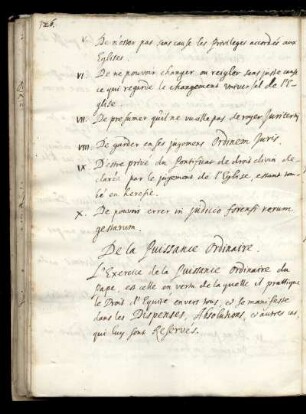 126.
V. De n'oster pas sans cause les privileges accordés aux
Eglises.
VI. De ne pouvoir changer ou reigler sans juste cause
ce qui regarde le changement universel de l'E-
glise.
VII. De presumer qu'il ne veulle pas deroger Juri tertii
VIII. De garder en ses jugemens Ordinem Juris.
IX. D'estre privé du Pontificat de droit divin de-
claré par le jugement de l'Eglise, estant tom-
bé en heresie.
X. De pouvoir errer in judicio forensi rerum
gestarum.
De la Puissance Ordinaire.
L'Exercice de la Puissance Ordinaire du
Pape, est celle en vertu de la quelle il prattique
le Droit d'Equité envers tous, et se manifeste
dans les Dispenses, Absolutions, et autres cas,
qui luy sont Reservés.